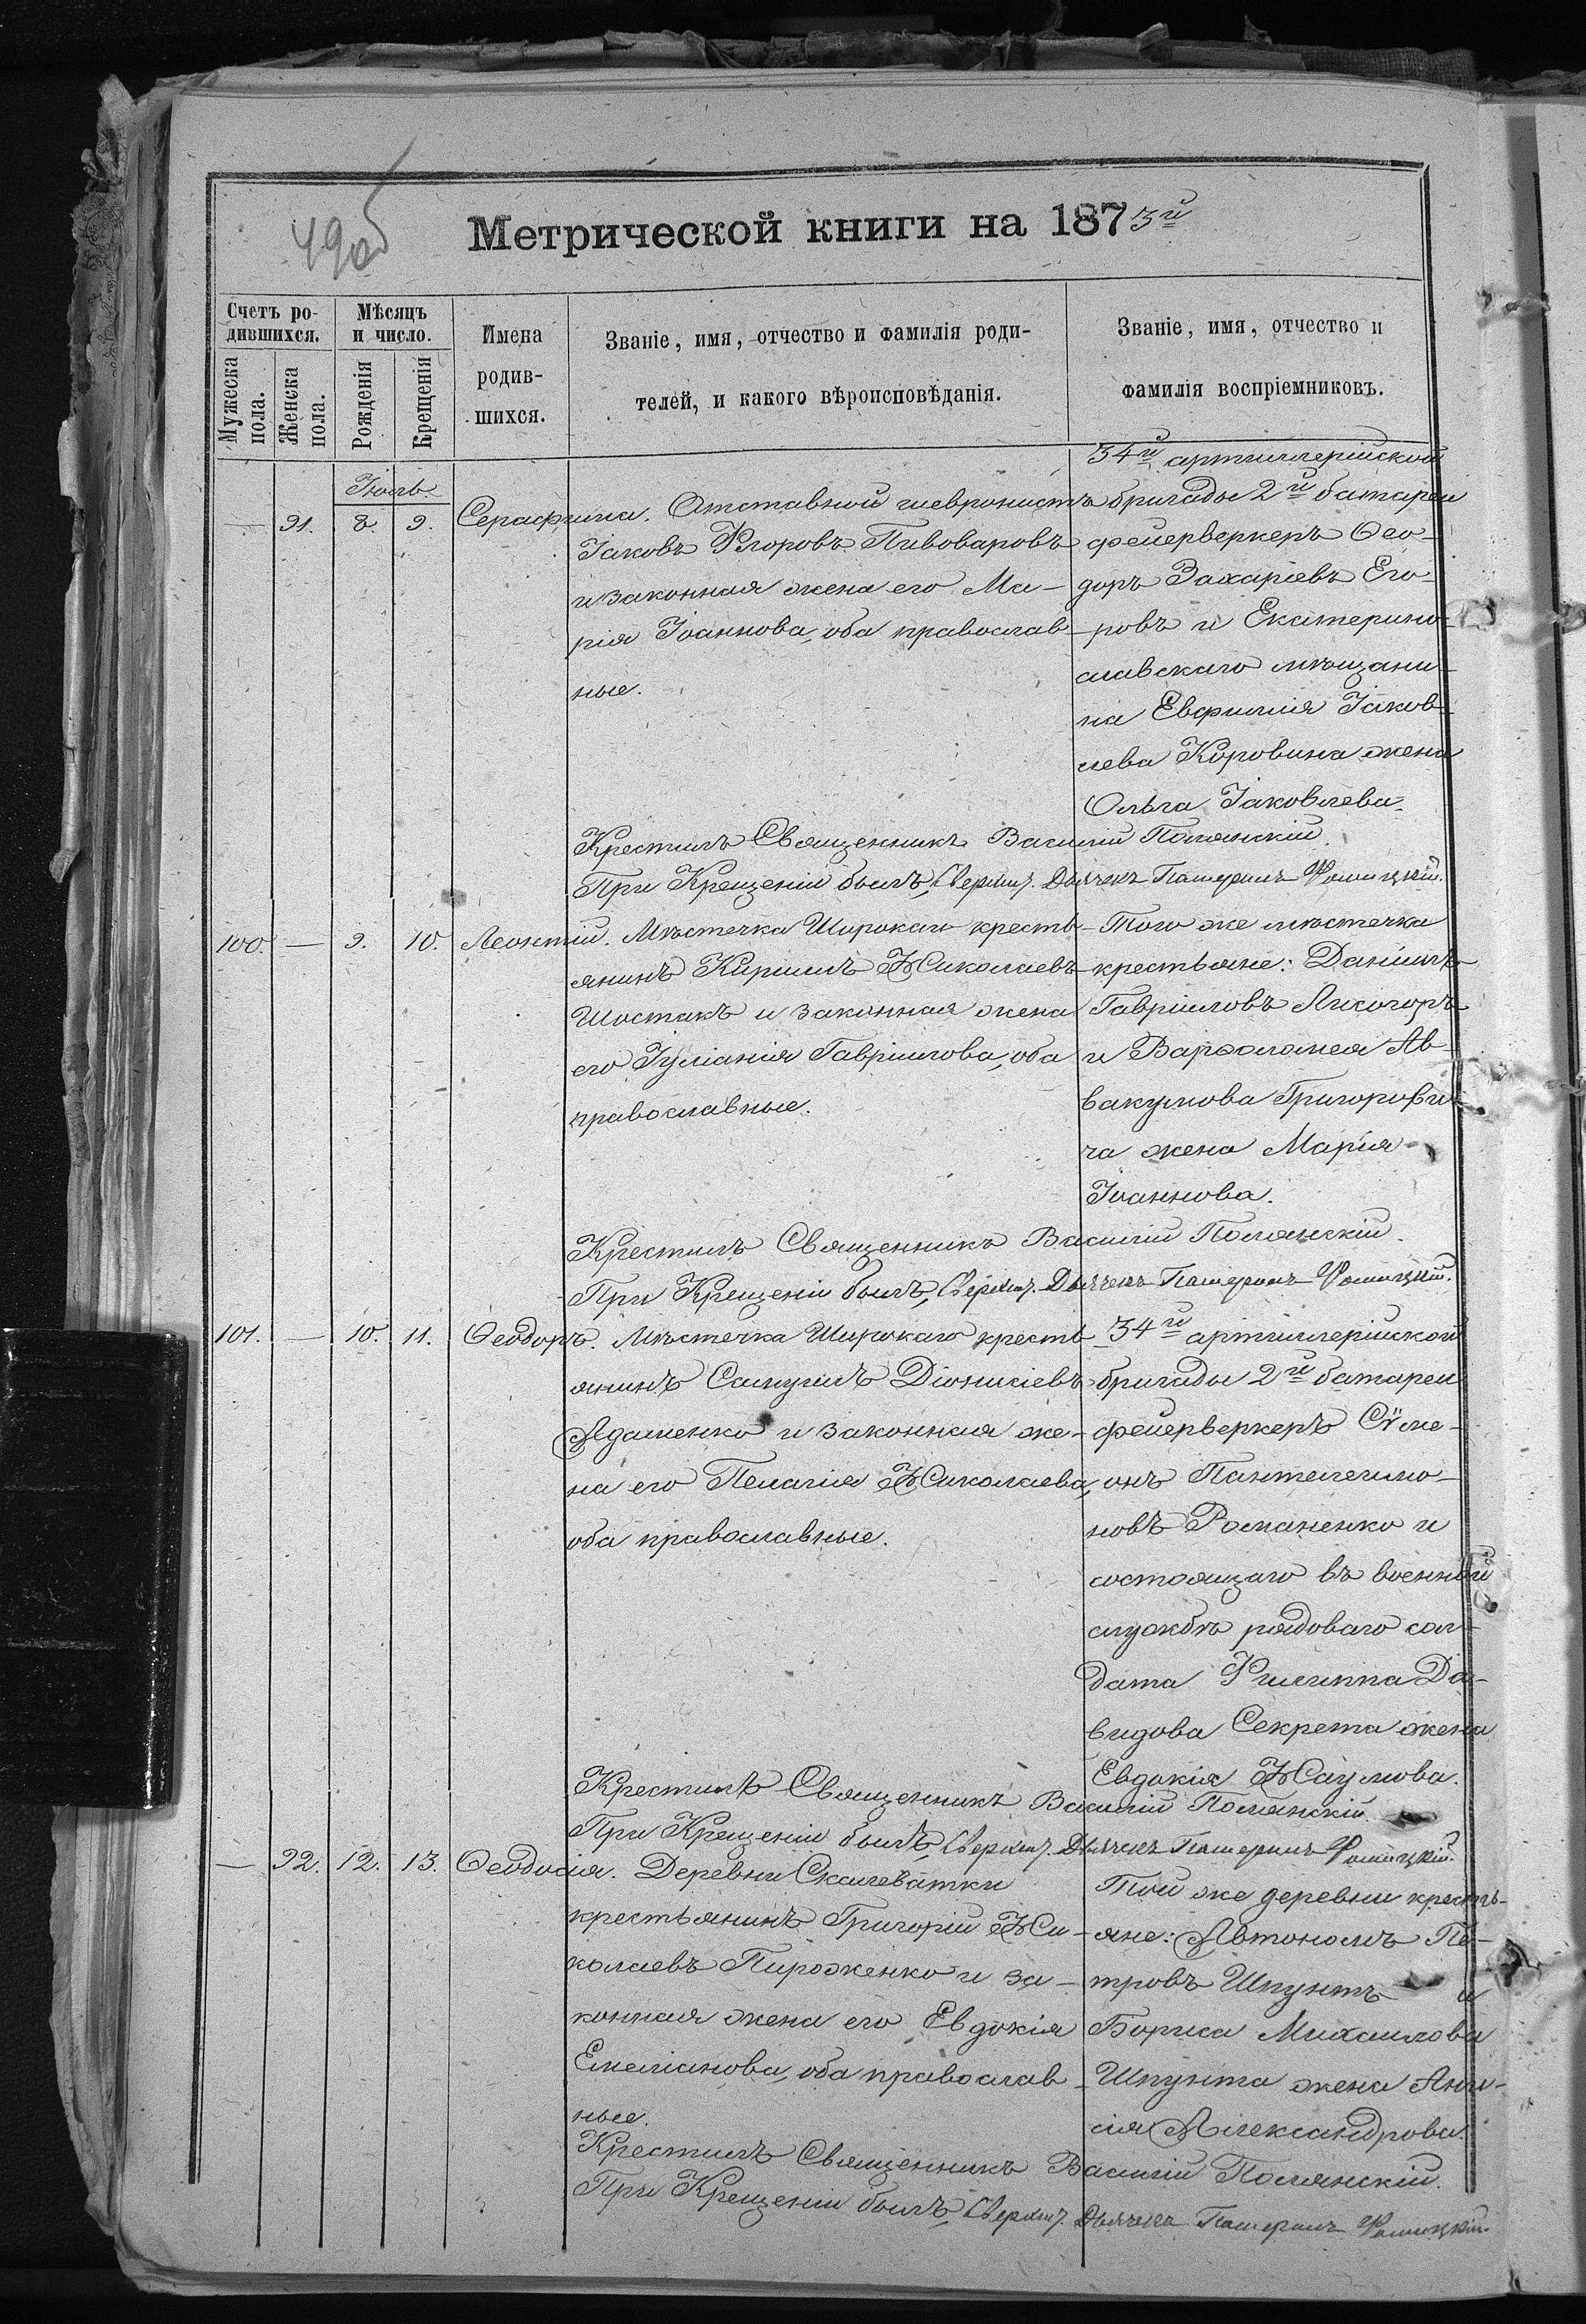 49об
Метрической книги на 1873й
Счетъ ро-
дившихся.
Мужеска
пола.
Женска
пола.
Мѣсяцъ
и число.
Рожденія
Крещенія
Имена
родив-
шихся.
Званіе, имя, отчество и фамилія роди-
телей, и какого вѣроисповѣданія.
Званіе, имя, отчество и
фамилія воспріемниковъ.
Іюль.
— 91. 8. 9. Серафима.
Отставной шевронистъ
Іаковъ Флоровъ Пивоваровъ
и законная жена его Ма-
рія Іоаннова, оба православ-
ные.
34й артиллерійской
бригады 2й батареи
фейерверкеръ Ѳео-
доръ Захаріевъ Его-
ровъ и Екатерино-
славскаго мѣщани-
на Евфимія Іаков-
лева Коровина жена
Ольга Іаковлева.
Крестилъ Священникъ Василій Полянскій.
При Крещеніи былъ, Сверхшт. Дьячекъ
100. — 9. 10. Леонтій.
Мѣстечка Широкаго кресть-
янинъ Кириллъ Николаевъ
Шостакъ и законная жена
его Іуліанія Гавріилова, оба
православные.
Того же мѣстечка
крестьяне: Даніилъ
Гавріиловъ
и Варѳоломея Ав-
вакумова Григорови-
ча жена Марія
Іоаннова.
Крестилъ Священникъ Василій Полянскій.
При Крещеніи былъ, Сверхшт. Дьячекъ
101. — 10. 11. Ѳеодоръ.
Мѣстечка Широкаго кресть
янинъ Самуилъ Діонисіевъ
Адаменко и законная же-
на его Пелагія Николаева,
оба православные.
34й артиллерійской
бригады 2й батареи
фейерверкеръ Сѵме-
онъ Пантелеимо-
новъ Романенко и
состоящаго въ военной
службѣ рядоваго сол-
дата Филиппа Да-
видова Секрета жена
Евдокія Наумова.
Крестилъ Священникъ Василій Полянскій.
При Крещеніи былъ, Сверхшт. Дьячекъ
— 92. 12. 13. Ѳеодосія.
Деревни Скалеватки
крестьянинъ Григорій Ни-
колаевъ Пироженко и за-
конная жена его Евдокія
Емеліанова, оба православ-
ные.
Той же деревни кресть-
яне: Автономъ Пе-
тровъ Шпунтъ и
Бориса Михаилова
Шпунта жена Ани-
сія Александрова.
Крестилъ Священникъ Василій Полянскій.
При Крещеніи былъ, Сверхшт. Дьячекъ